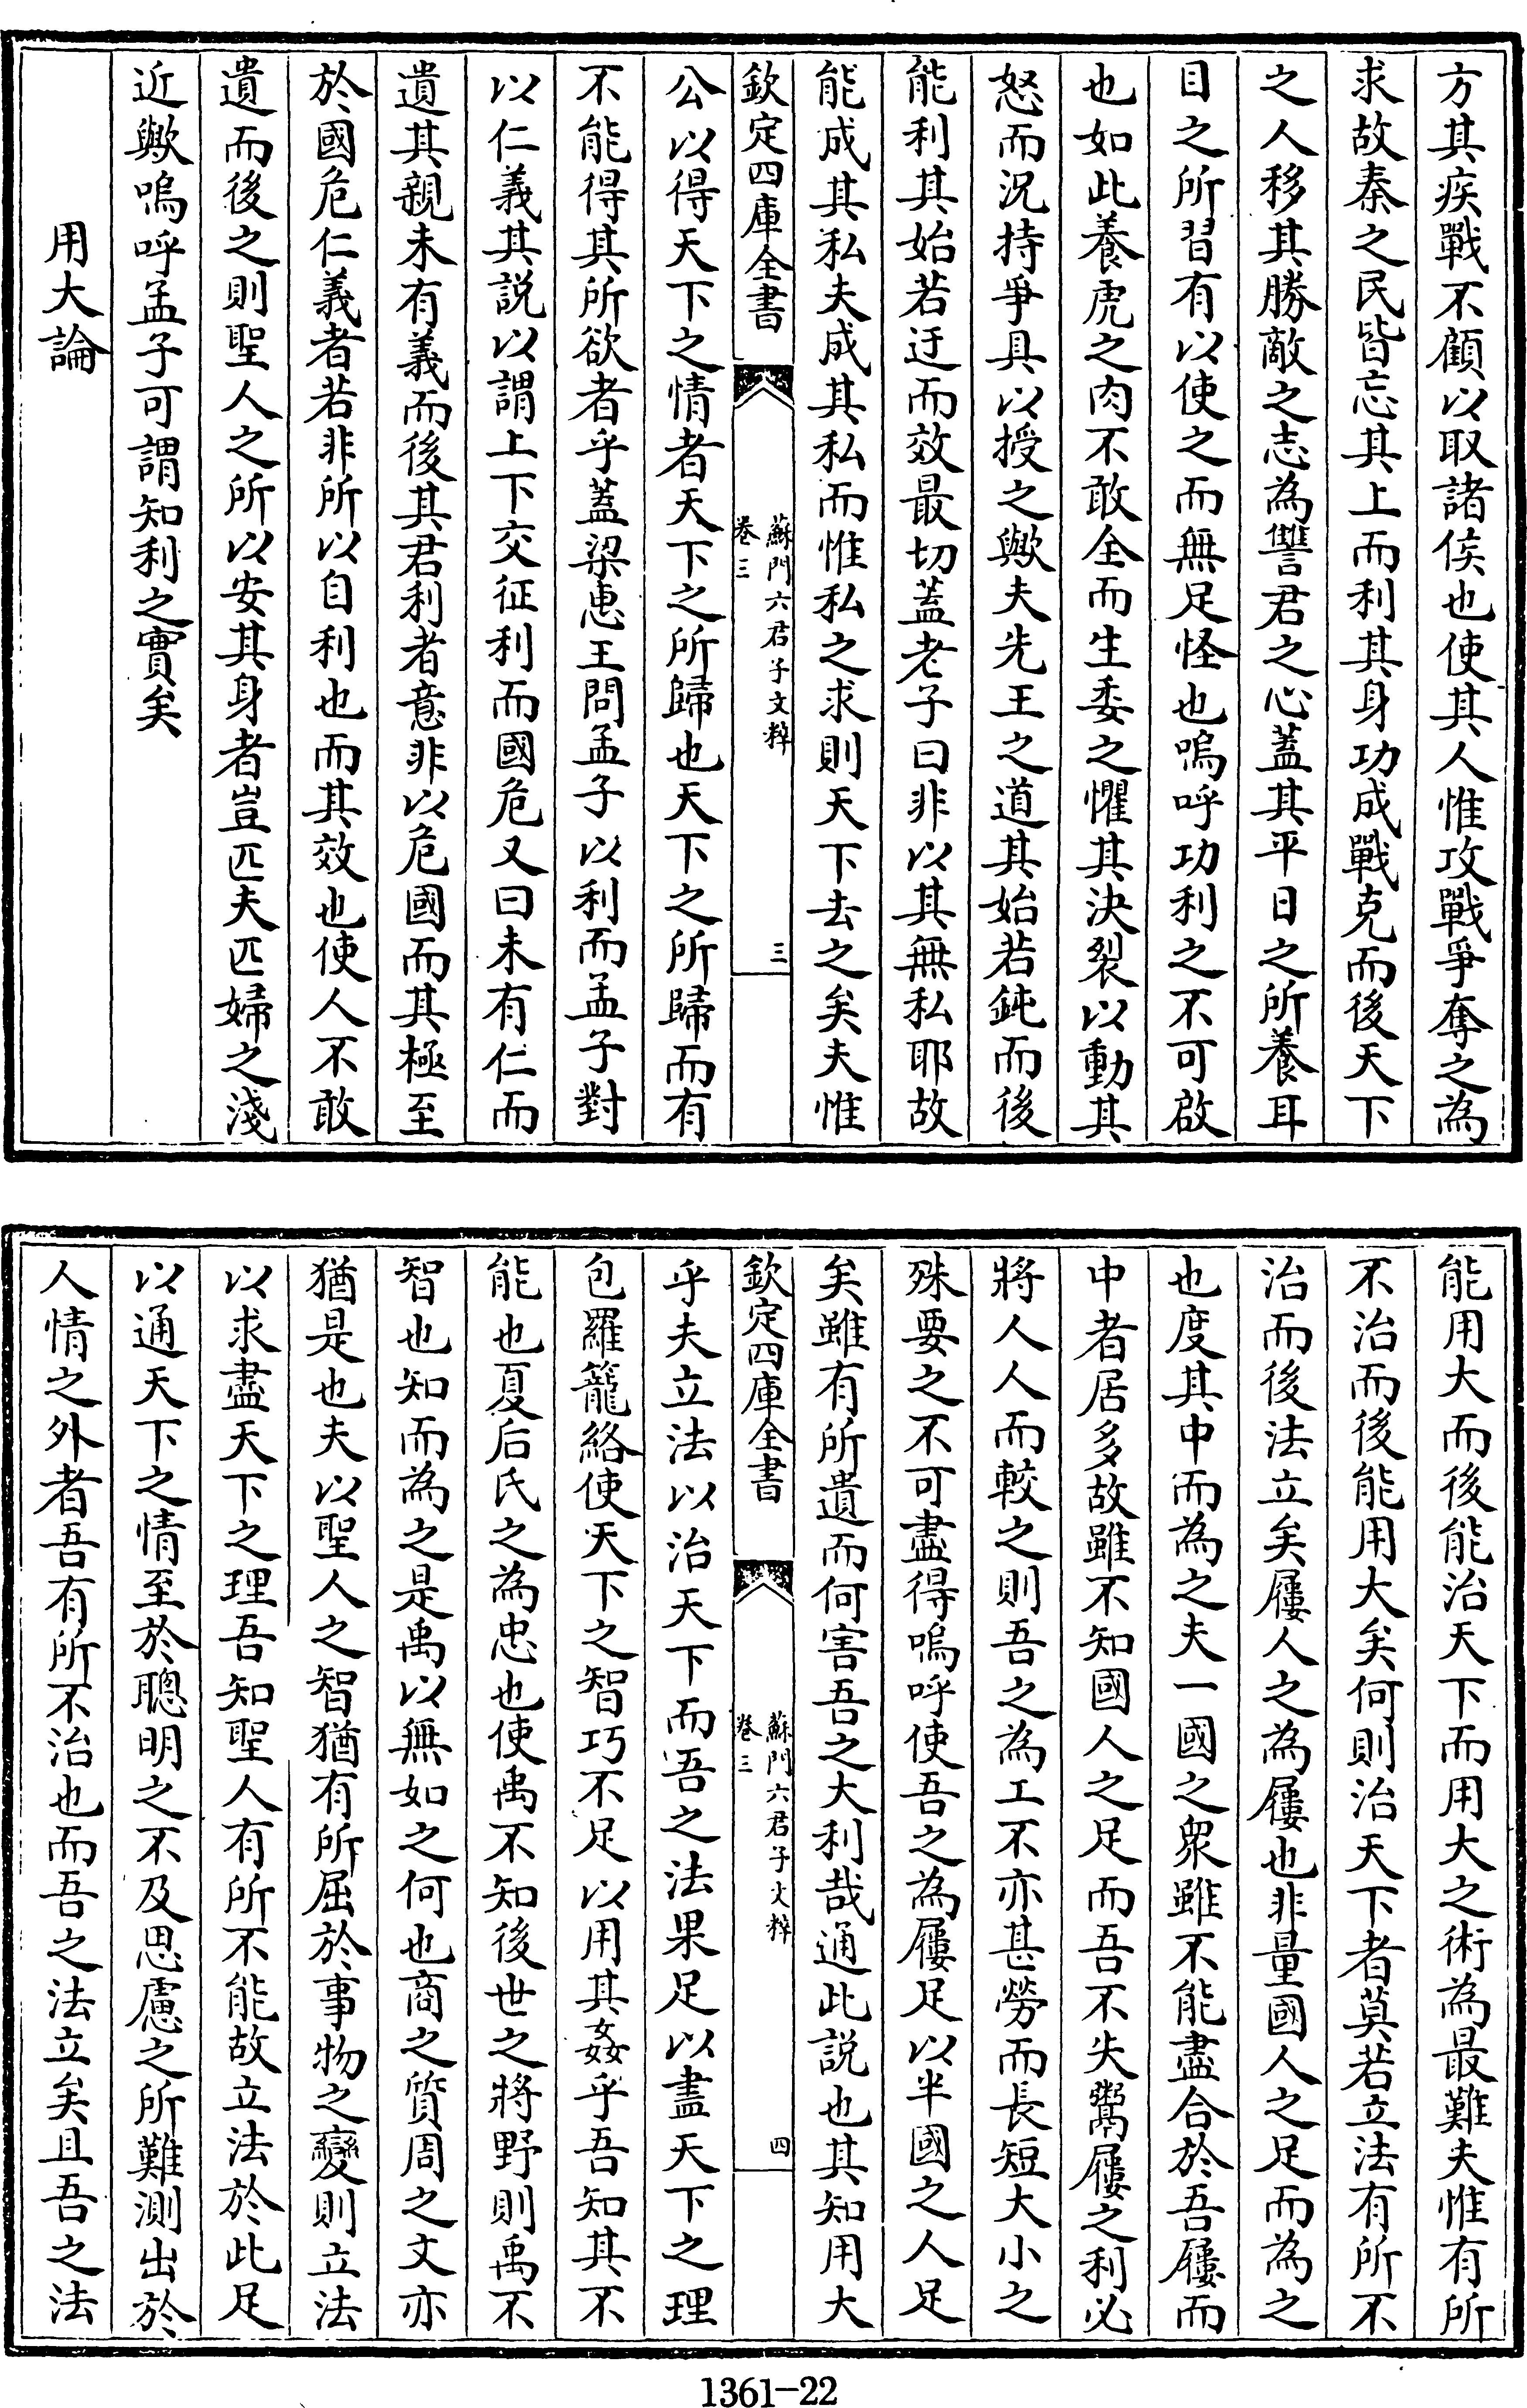 方其疾戰不顧以取諸侯也使其人惟攻戰爭奪之為
求故秦之民皆忘其上而利其身功成戰克而後天下
之人移其勝敵之志為讐君之心蓋其平日之所養耳
目之所習有以使之而無足怪也嗚呼功利之不可啟
也如此養虎之肉不敢全而生委之懼其決裂以動其
怒而況持爭具以授之歟夫先王之道其始若鈍而後
能利其始若迂而效最切蓋老子曰非以其無私耶故
能成其私夫成其私而惟私之求則天下去之矣夫惟
欽定四庫全書
蘇門六君子文粹
卷三
三
公以得天下之情者天下之所歸也天下之所歸而有
不能得其所欲者乎蓋梁惠王問孟子以利而孟子對
以仁義其説以謂上下交征利而國危又曰未有仁而
遺其親未有義而後其君利者意非以危國而其極至
於國危仁義者若非所以自利也而其效也使人不敢
遺而後之則聖人之所以安其身者豈匹夫匹婦之淺
近歟嗚呼孟子可謂知利之實矣
用大論
能用大而後能治天下而用大之術為最難夫惟有所
不治而後能用大矣何則治天下者莫若立法有所不
治而後法立矣屨人之為屨也非量國人之足而為之
也度其中而為之夫一國之衆雖不能盡合於吾屨而
中者居多故雖不知國人之足而吾不失鬻屨之利必
將人人而較之則吾之為工不亦甚勞而長短大小之
殊要之不可盡得嗚呼使吾之為屨足以半國之人足
矣雖有所遺而何害吾之大利哉通此説也其知用大
欽定四庫全書
蘇門六君子文粹
卷三
四
乎夫立法以治天下而吾之法果足以盡天下之理
包羅籠絡使天下之智巧不足以用其姦乎吾知其不
能也夏后氏之為忠也使禹不知後世之將野則禹不
智也知而為之是禹以無如之何也商之質周之文亦
猶是也夫以聖人之智猶有所屈於事物之變則立法
以求盡天下之理吾知聖人有所不能故立法於此足
以通天下之情至於聰明之不及思慮之所難測出於
人情之外者吾有所不治也而吾之法立矣且吾之法
1361-22